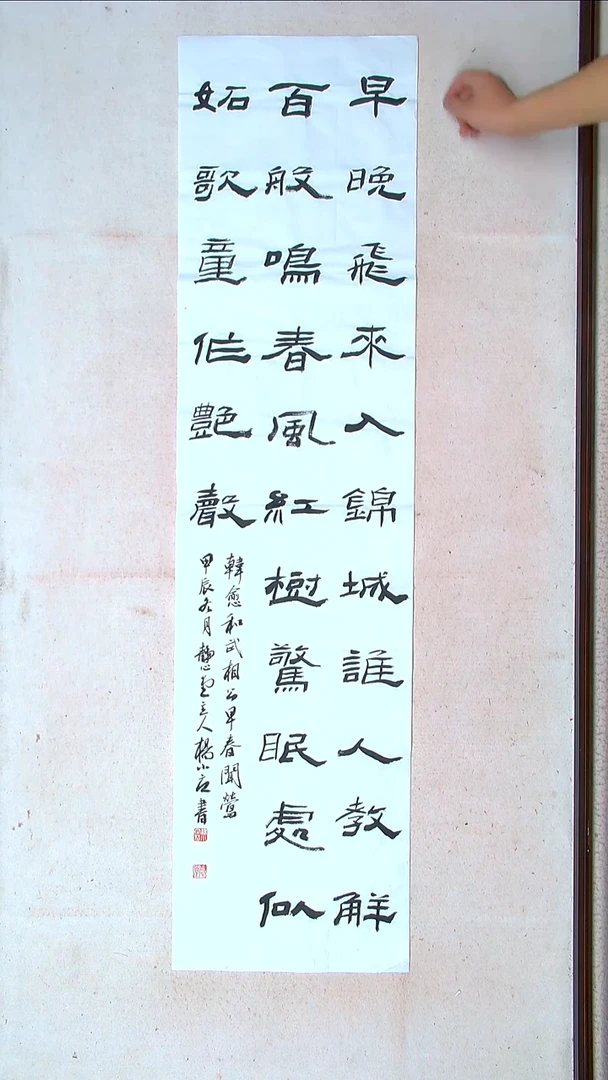 早晚飛來入錦城誰人教解
百般鳴春風紅樹驚眠處似
妬歌童作艷聲
韓愈和武相公早春聞鶯
甲辰冬月 主人楊小 書